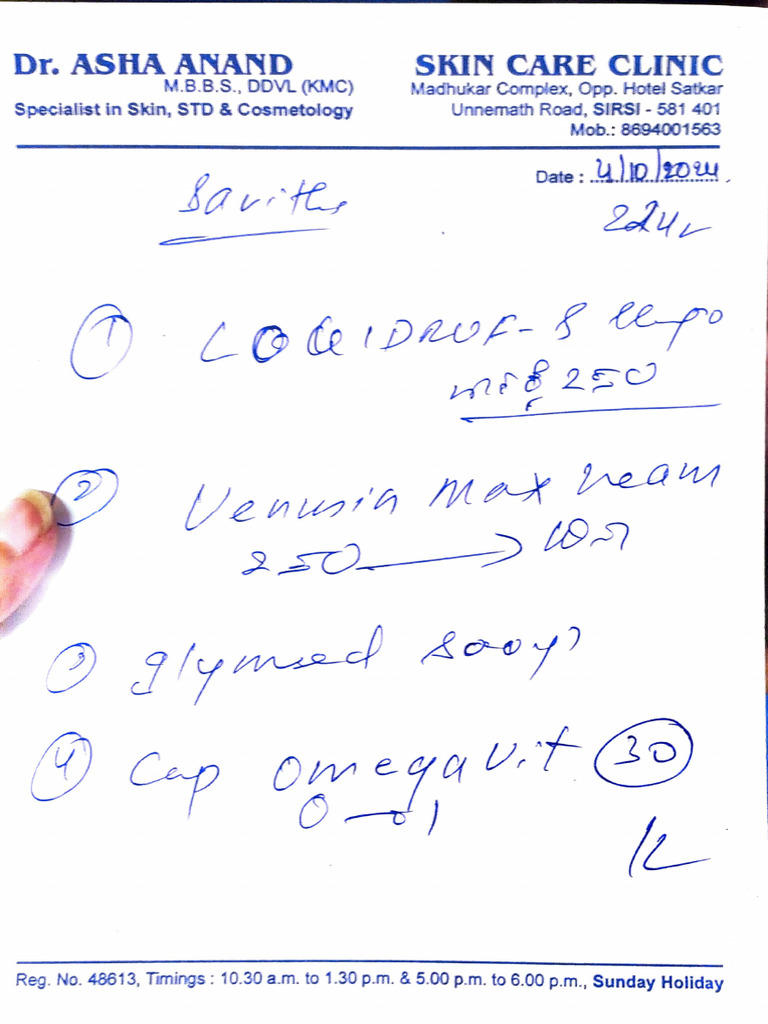 Dr. ASHA ANAND
M.B.B.S., DDVL (KMC)
Specialist in Skin, STD & Cosmetology
SKIN CARE CLINIC
Madhukar Complex, Opp. Hotel Satkar
Unnemath Road, SIRSI - 581 401
Mob.: 8694001563
Date : 4/10/2024
①
250
② Venusia Max
250
③
④ Cap omegavit 30
0-0-1
Reg. No. 48613, Timings : 10.30 a.m. to 1.30 p.m. & 5.00 p.m. to 6.00 p.m., Sunday Holiday